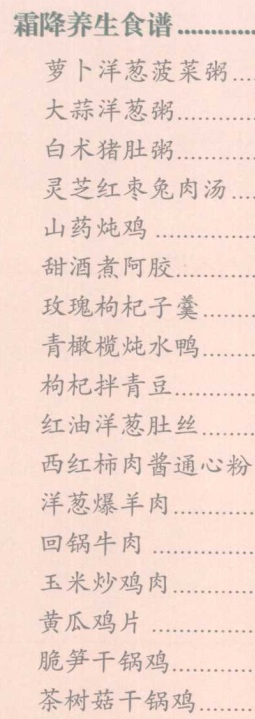 霜降养生食谱............
萝卜洋葱菠菜粥....
大蒜洋葱粥............
白术猪肚粥............
灵芝红枣兔肉汤....
山药炖鸡 ...............
甜酒煮阿胶............
玫瑰枸杞子羹........
青橄榄炖水鸭........
枸杞拌青豆............
红油洋葱肚丝........
西红柿肉酱通心粉
洋葱爆羊肉............
回锅牛肉 ...............
玉米炒鸡肉............
黄瓜鸡片 ...............
脆笋干锅鸡............
茶树菇干锅鸡........